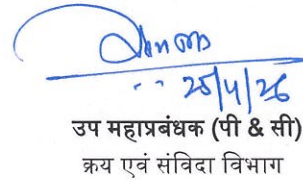 25/4/26
उप महाप्रबंधक (पी & सी)
क्रय एवं संविदा विभाग